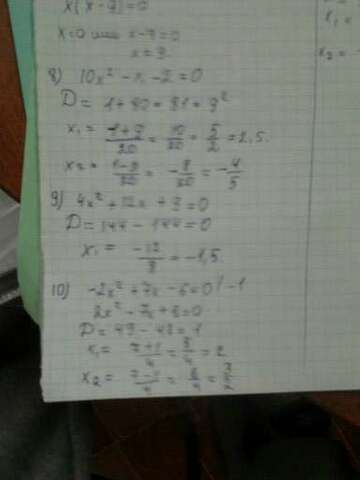 x(x-9)=0
x=0 или x-9=0
x=9.
8) 10x² - x - 2=0
D= 1+80=81=9²
x₁= 1+9/20 = 10/20 = 5/2 = 2,5.
x₂= 1-9/20 = -8/20 = -4/5
9) 4x²+12x+9=0
D=144-144=0
x₁= -12/8 = -1,5
10) -2x²+7x-6=0 |·-1
2x²-7x+6=0
D=49-48=1
x₁= 7+1/4 = 8/4 = 2
x₂= 7-1/4 = 6/4 = 3/2
x₁ =
x₂ =